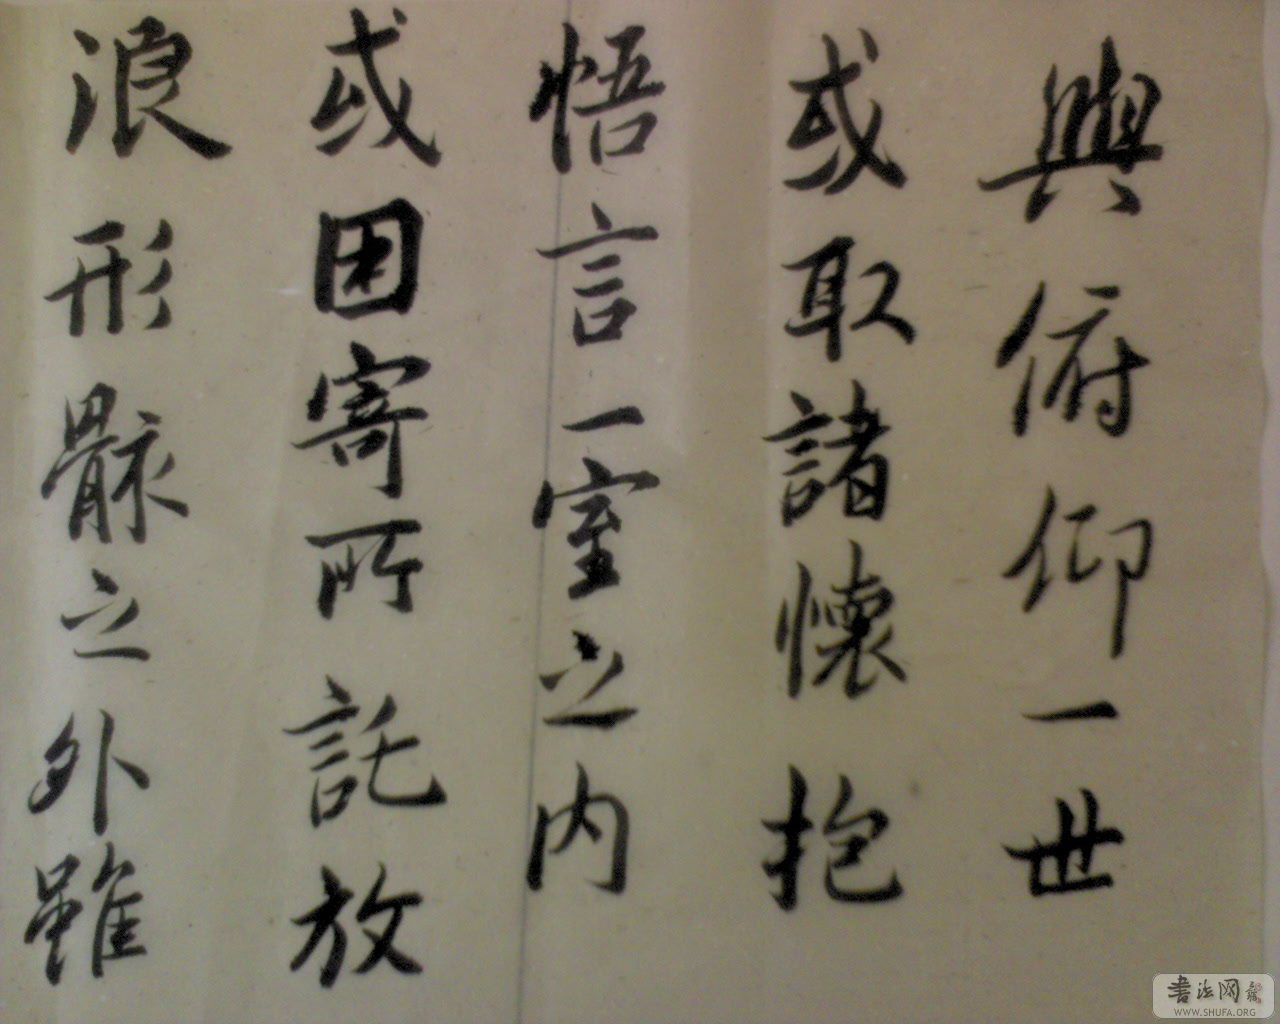 與俯仰一世
或取諸懷抱
悟言一室之內
或因寄所託放
浪形骸之外雖
書法网
WWW.SHUFA.ORG